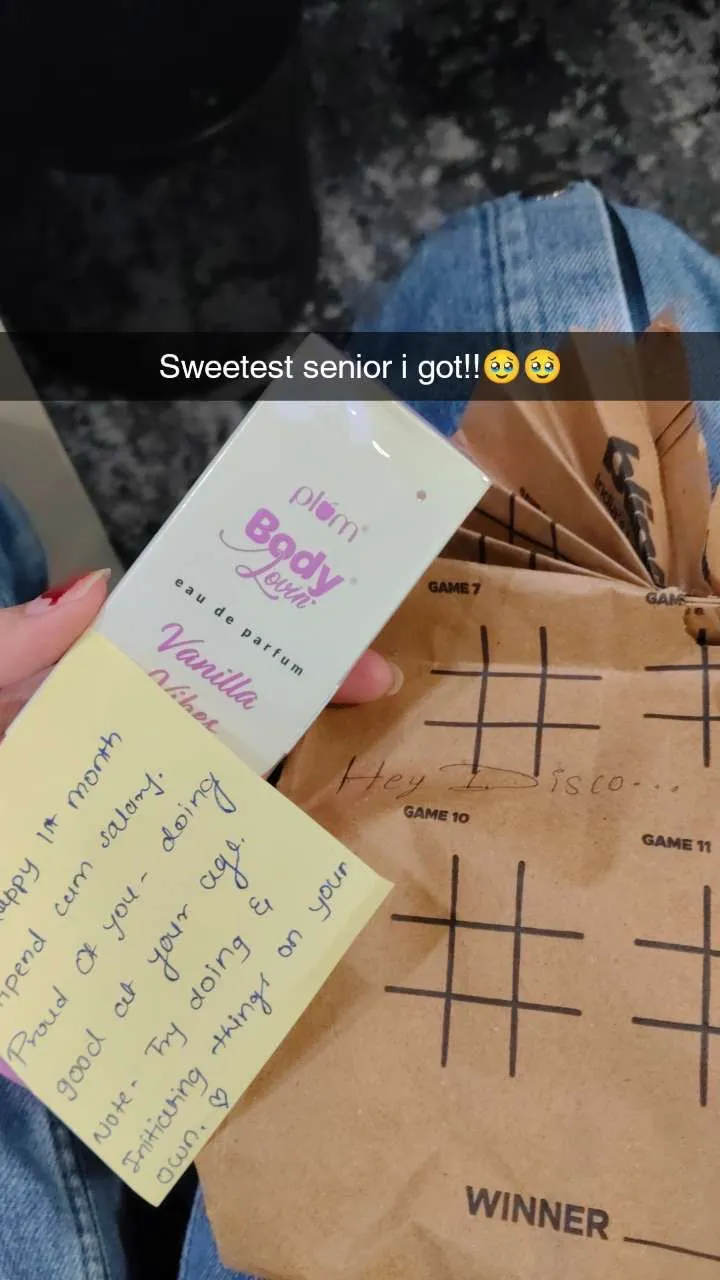 Sweetest senior i got!!🥹🥹
plum
Body
Lovin'
eau de parfum
Vanilla
Vibes
GAME 7
Hey Disco...
GAME 10
GAME 11
WINNER
1st month
cum salary.
Proud of you - doing
good at your age.
Note - Try doing &
Initiating things on your
own. ♡